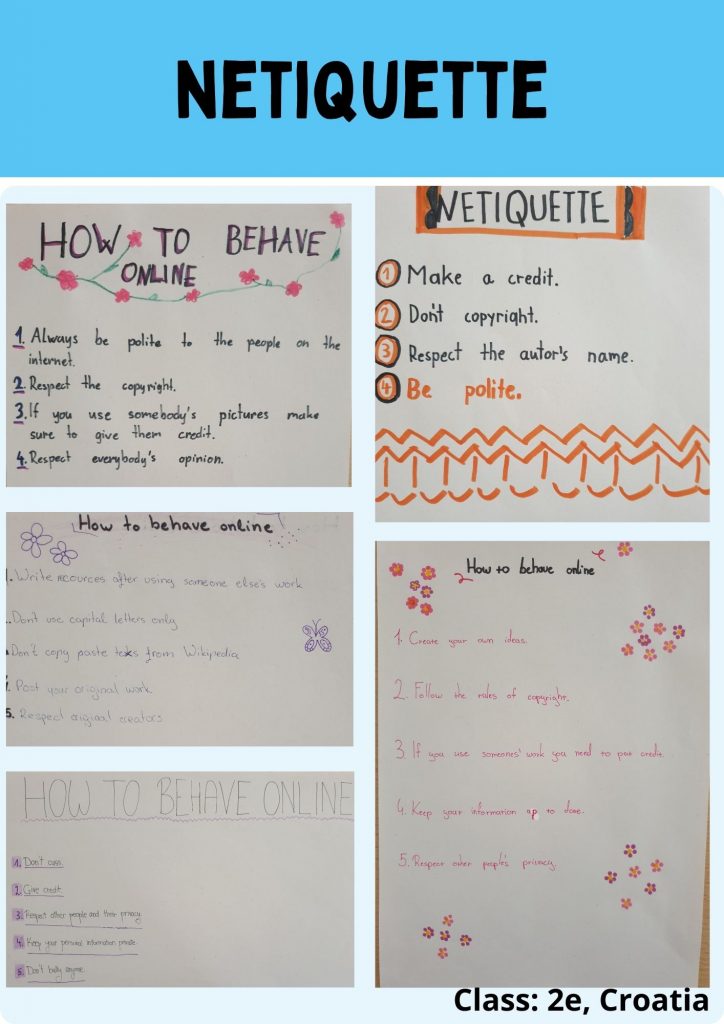 NETIQUETTE
HOW TO BEHAVE
ONLINE
1. Always be polite to the people on the
internet.
2. Respect the copyright.
3. If you use somebody's pictures make
sure to give them credit.
4. Respect everybody's opinion.
NETIQUETTE
1 Make a credit.
2 Don't copyright.
3 Respect the autor's name.
4 Be polite.
How to behave online
1. Write recources after using someone else's work
Don't use capital letters only
Don't copy paste texts from Wikipedia
4. Post your original work.
5. Respect original creators
How to behave online
1. Create your own ideas.
2. Follow the rules of copyright.
3. If you use someones' work you need to put credit.
4. Keep your information up to done.
5. Respect other people's privacy.
HOW TO BEHAVE ONLINE
1. Don't cuss.
2. Give credit.
3. Respect other people and their privacy
4. Keep your personal information private.
5. Don't bully anyone.
Class: 2e, Croatia